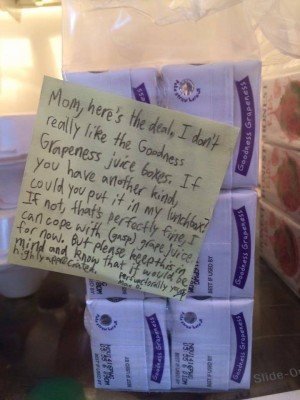 Mom, here's the deal. I don't
really like the Goodness
Grapeness juice boxes. If
you have another kind,
could you put it in my lunchbox?
If not, that's perfectly fine, I
can cope with (gasp) grape juice
for now. But please keep this in
mind and know that it would be
highly appreciated.
Goodness Grapeness
Goodness Grapeness
Goodness Grapeness
Goodness Grapeness
Goodness Grapeness
BEST IF USED BY
BEST IF USED BY
Slide-O